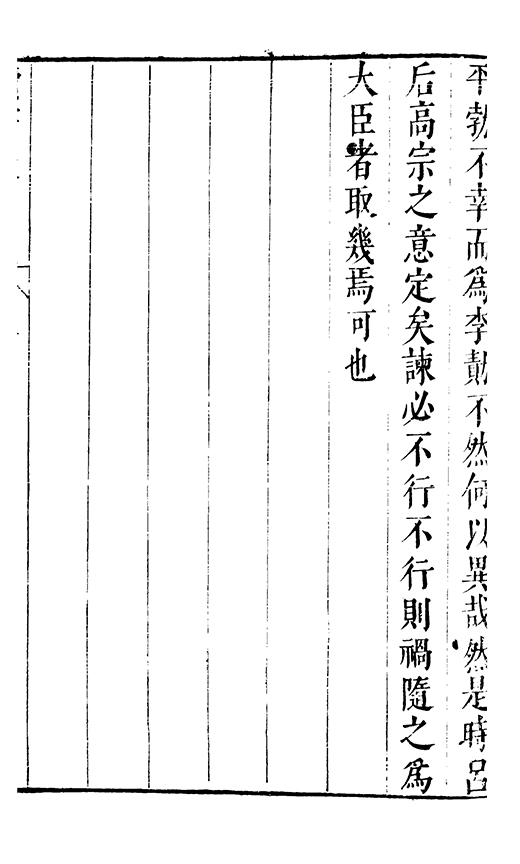 平勃不幸而爲李勣不然何以異哉然是時呂
后高宗之意定矣諫必不行不行則禍隨之爲
大臣者取幾焉可也